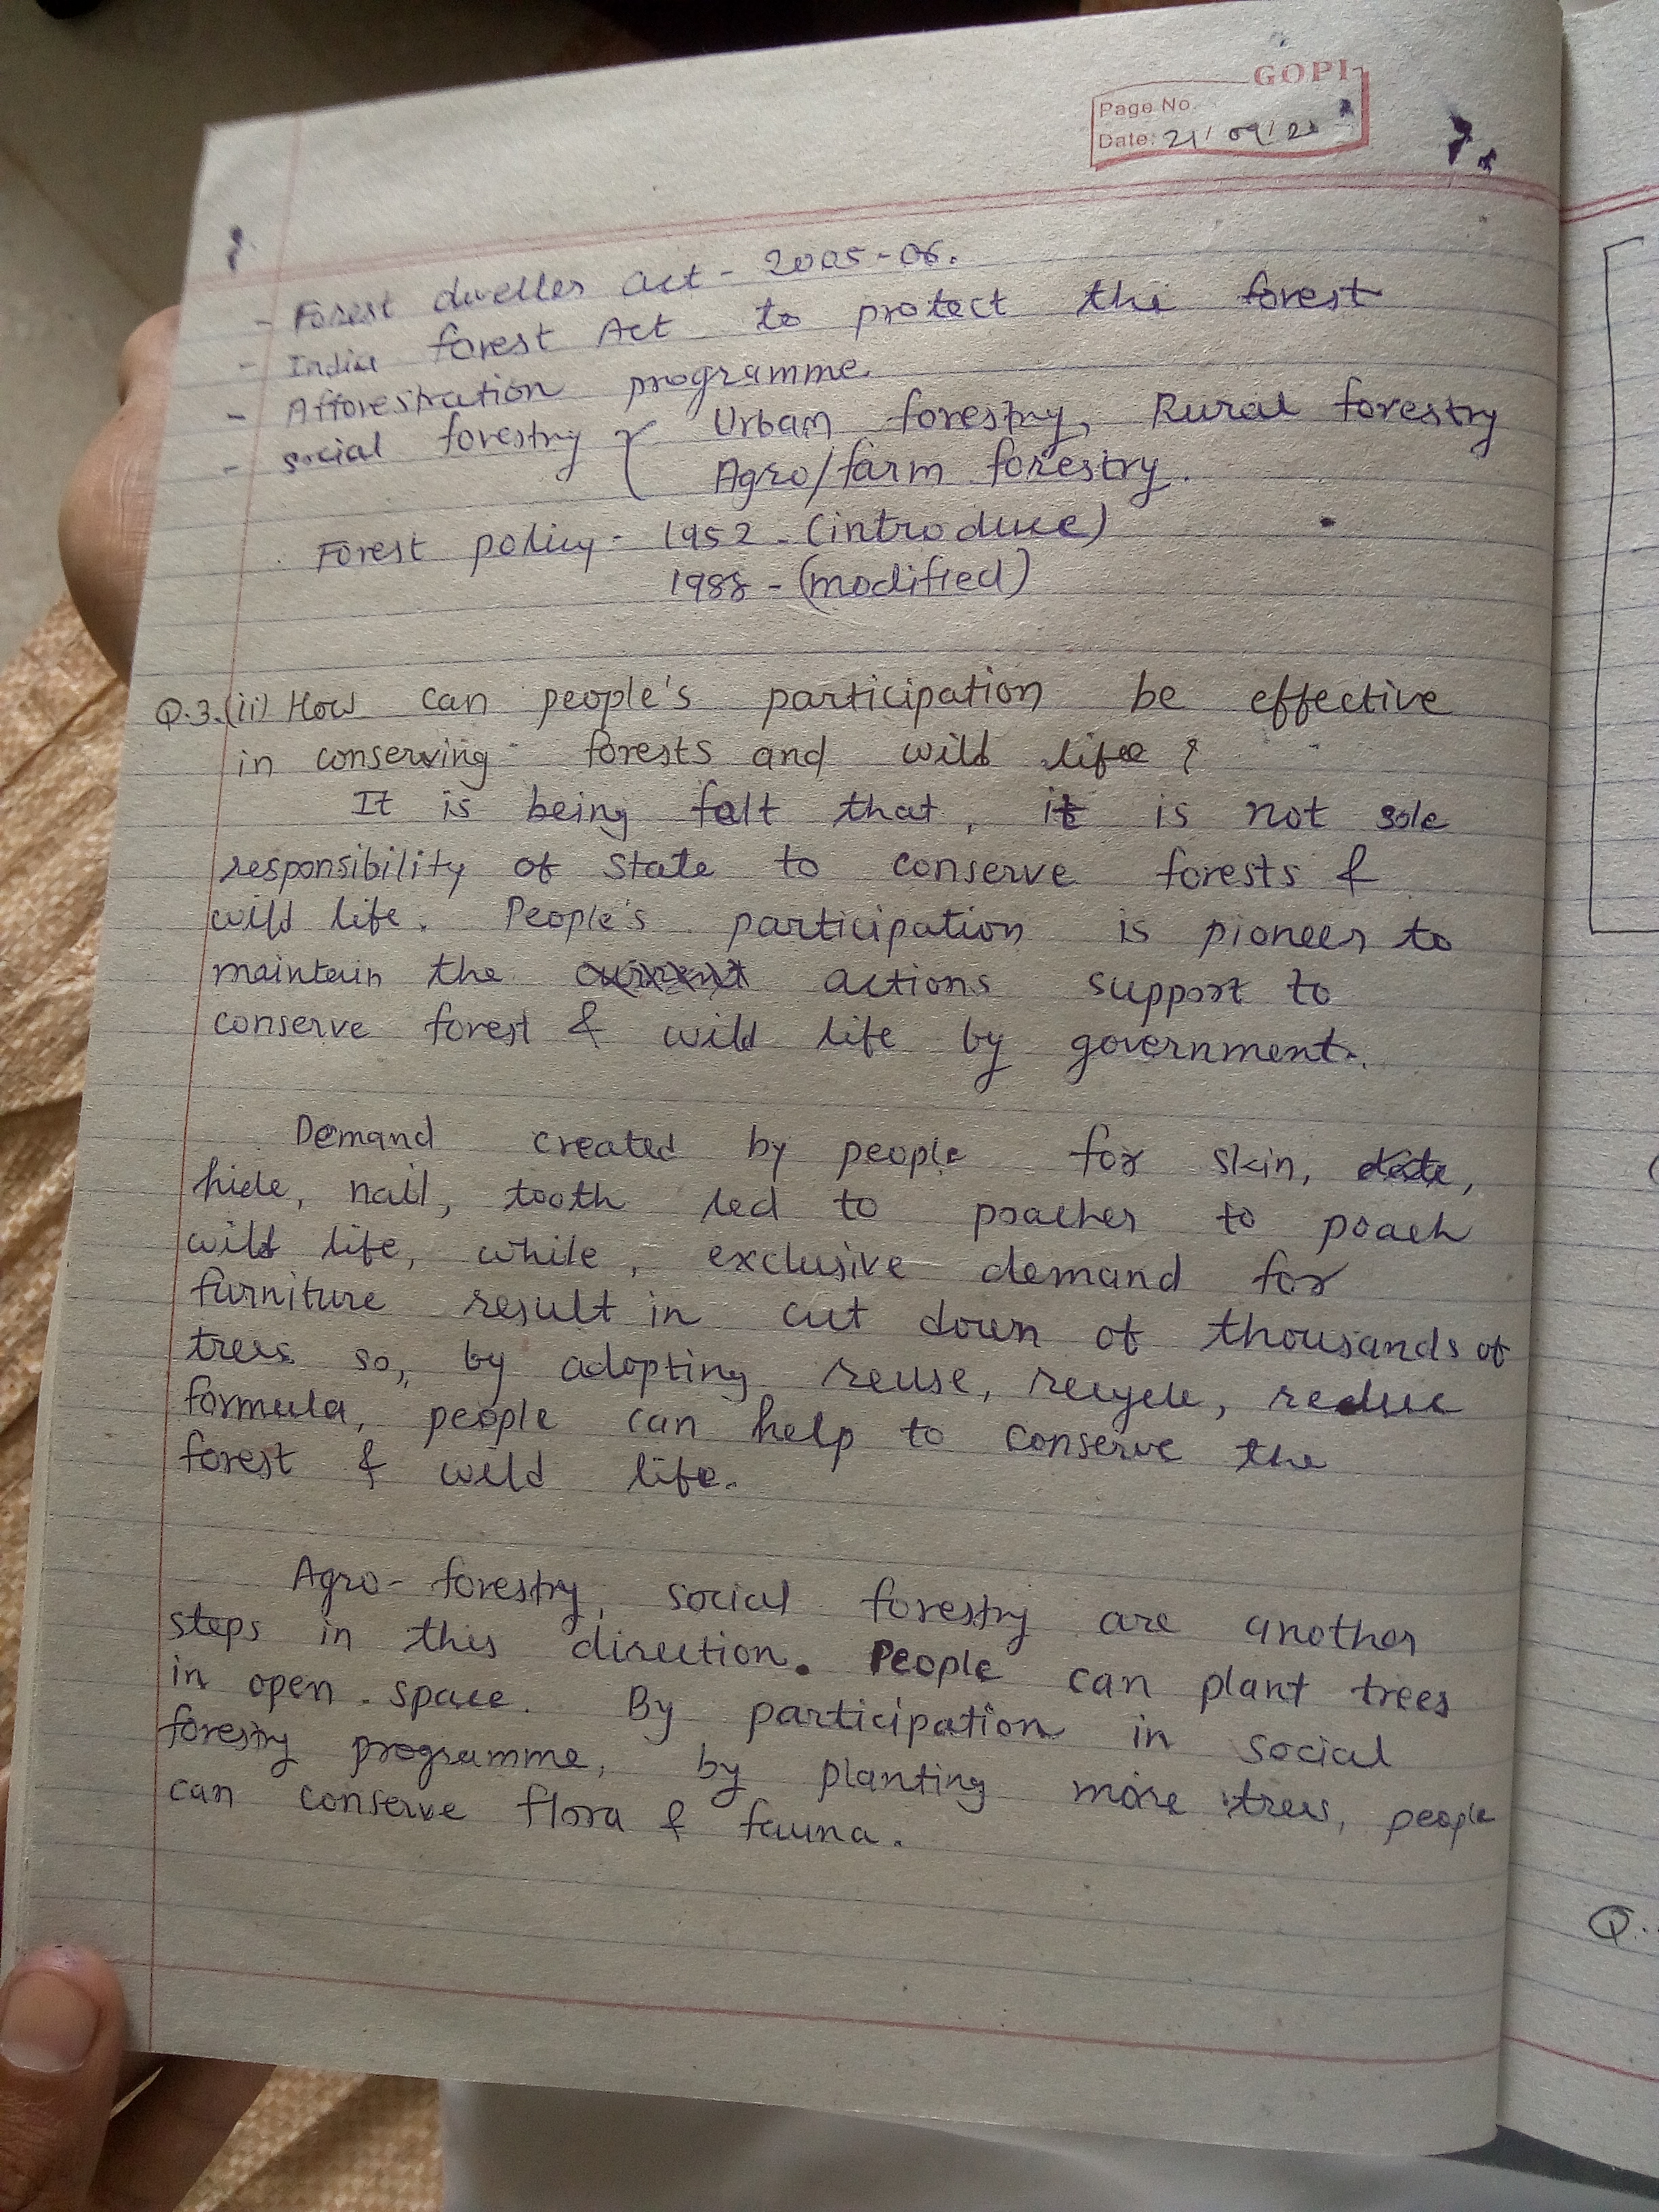 GOPI
Page No.
Date: 21/09/20
- Forest dweller act - 2005-06.
- India forest Act to protect the forest
- Afforestration programme.
- social forestry { Urban forestry, Rural forestry
Agro/farm forestry.
Forest policy - 1952 - (introduce)
1988 - (modified)
Q.3.(ii) How can people's participation be effective
in conserving forests and wild life ?
It is being felt that, it is not sole
responsibility of State to conserve forests &
wild life. People's participation is pioneer to
maintain the actions support to
conserve forest & wild life by government.
Demand created by people for skin,
hide, nail, tooth led to poacher to poach
wild life, while, exclusive demand for
furniture result in cut down of thousands of
trees so, by adopting reuse, recycle, reduce
formula, people can help to conserve the
forest & wild life.
Agro-forestry, social forestry are another
steps in this direction. People can plant trees
in open space. By participation in social
forestry programme, by planting more trees, people
can conserve flora & fauna.
Q.